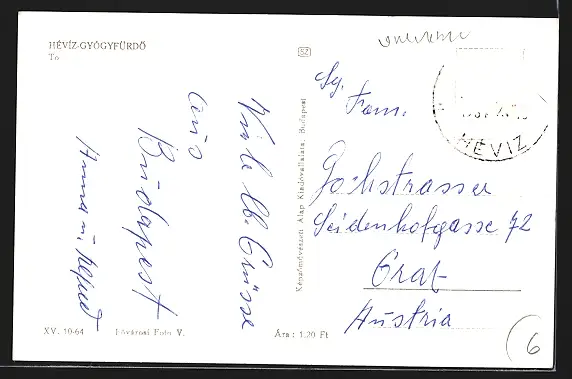 HÉVÍZ-GYÓGYFÜRDŐ
To
Viele lb. Grüsse
aus
Budapest
Anna u.
XV. 10-64
Fővárosi Fotó V.
Ára: 1,20 Ft
Képzőművészeti Alap Kiadóvállalata, Budapest
52
HÉVÍZ
Sg.
Fam.
Gockstrasser
Seidenhofgasse 72
Graz
Austria
6